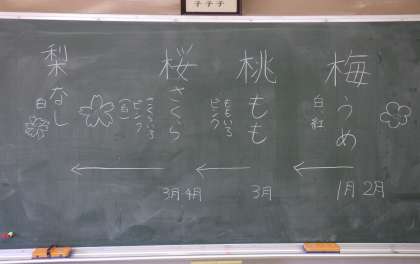 梅
うめ
白
紅
1月 2月
桃
もも
ももいろ
ピンク
3月
桜
さくら
さくらいろ
ピンク
3月 4月
梨
なし
白